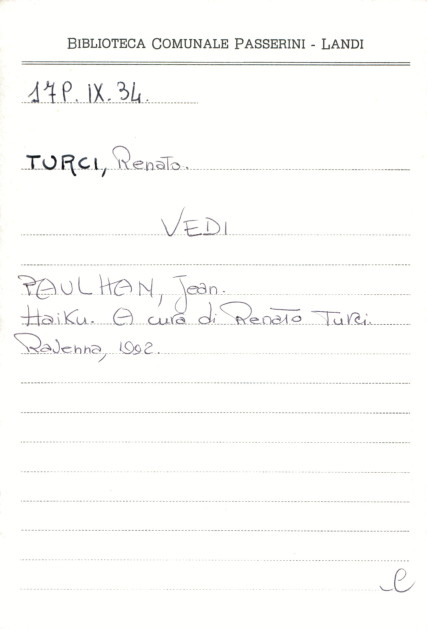 BIBLIOTECA COMUNALE PASSERINI - LANDI
17P. IX. 34.
TURCI, Renato.
VEDI
PAULHAN, Jean.
Haiku. A cura di Renato Turci.
Ravenna, 1992.